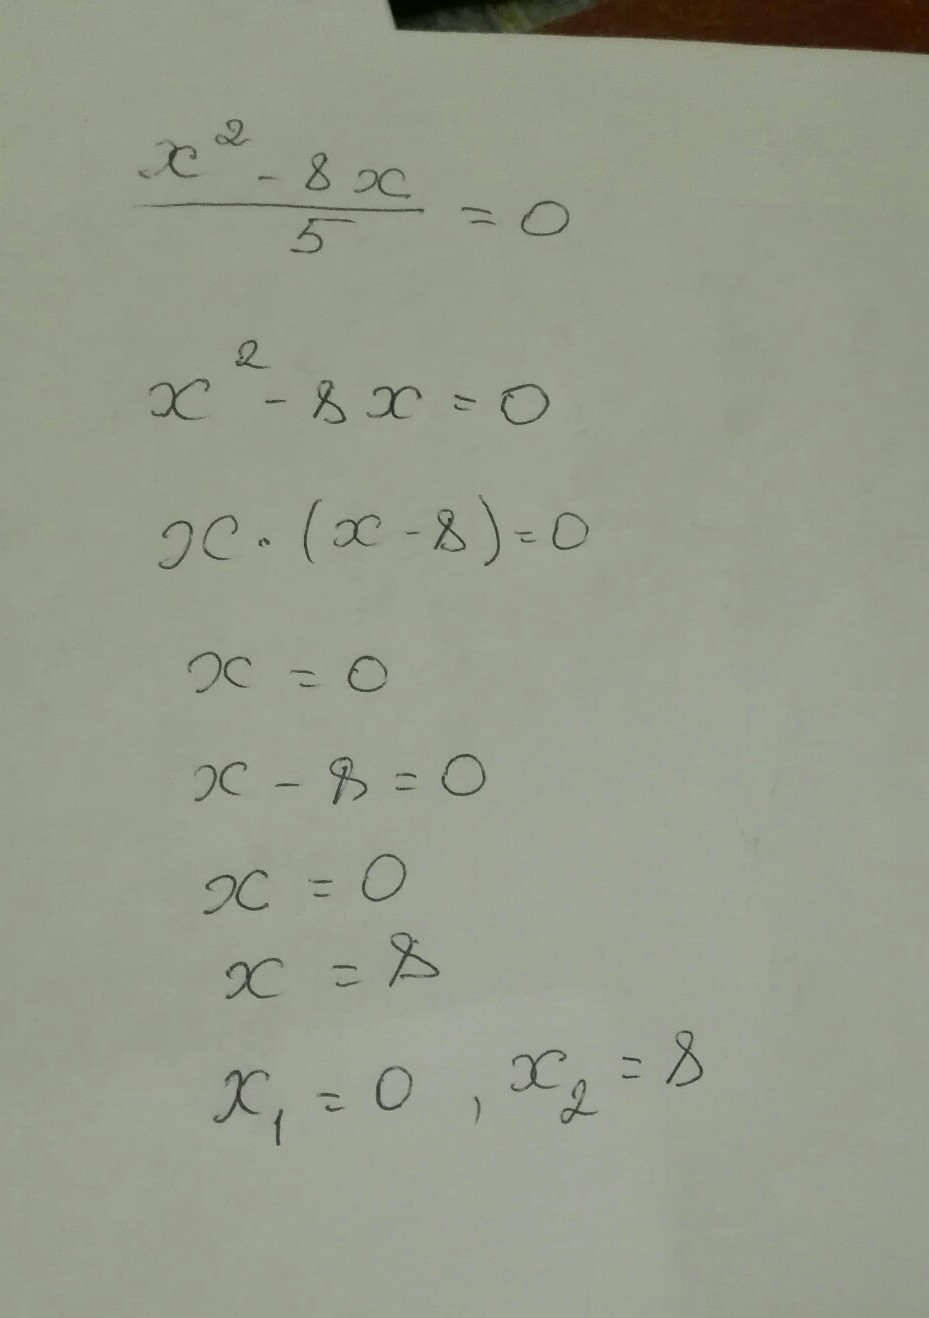 x² - 8x
5 = 0
x² - 8x = 0
x · (x - 8) = 0
x = 0
x - 8 = 0
x = 0
x = 8
x₁ = 0 , x₂ = 8